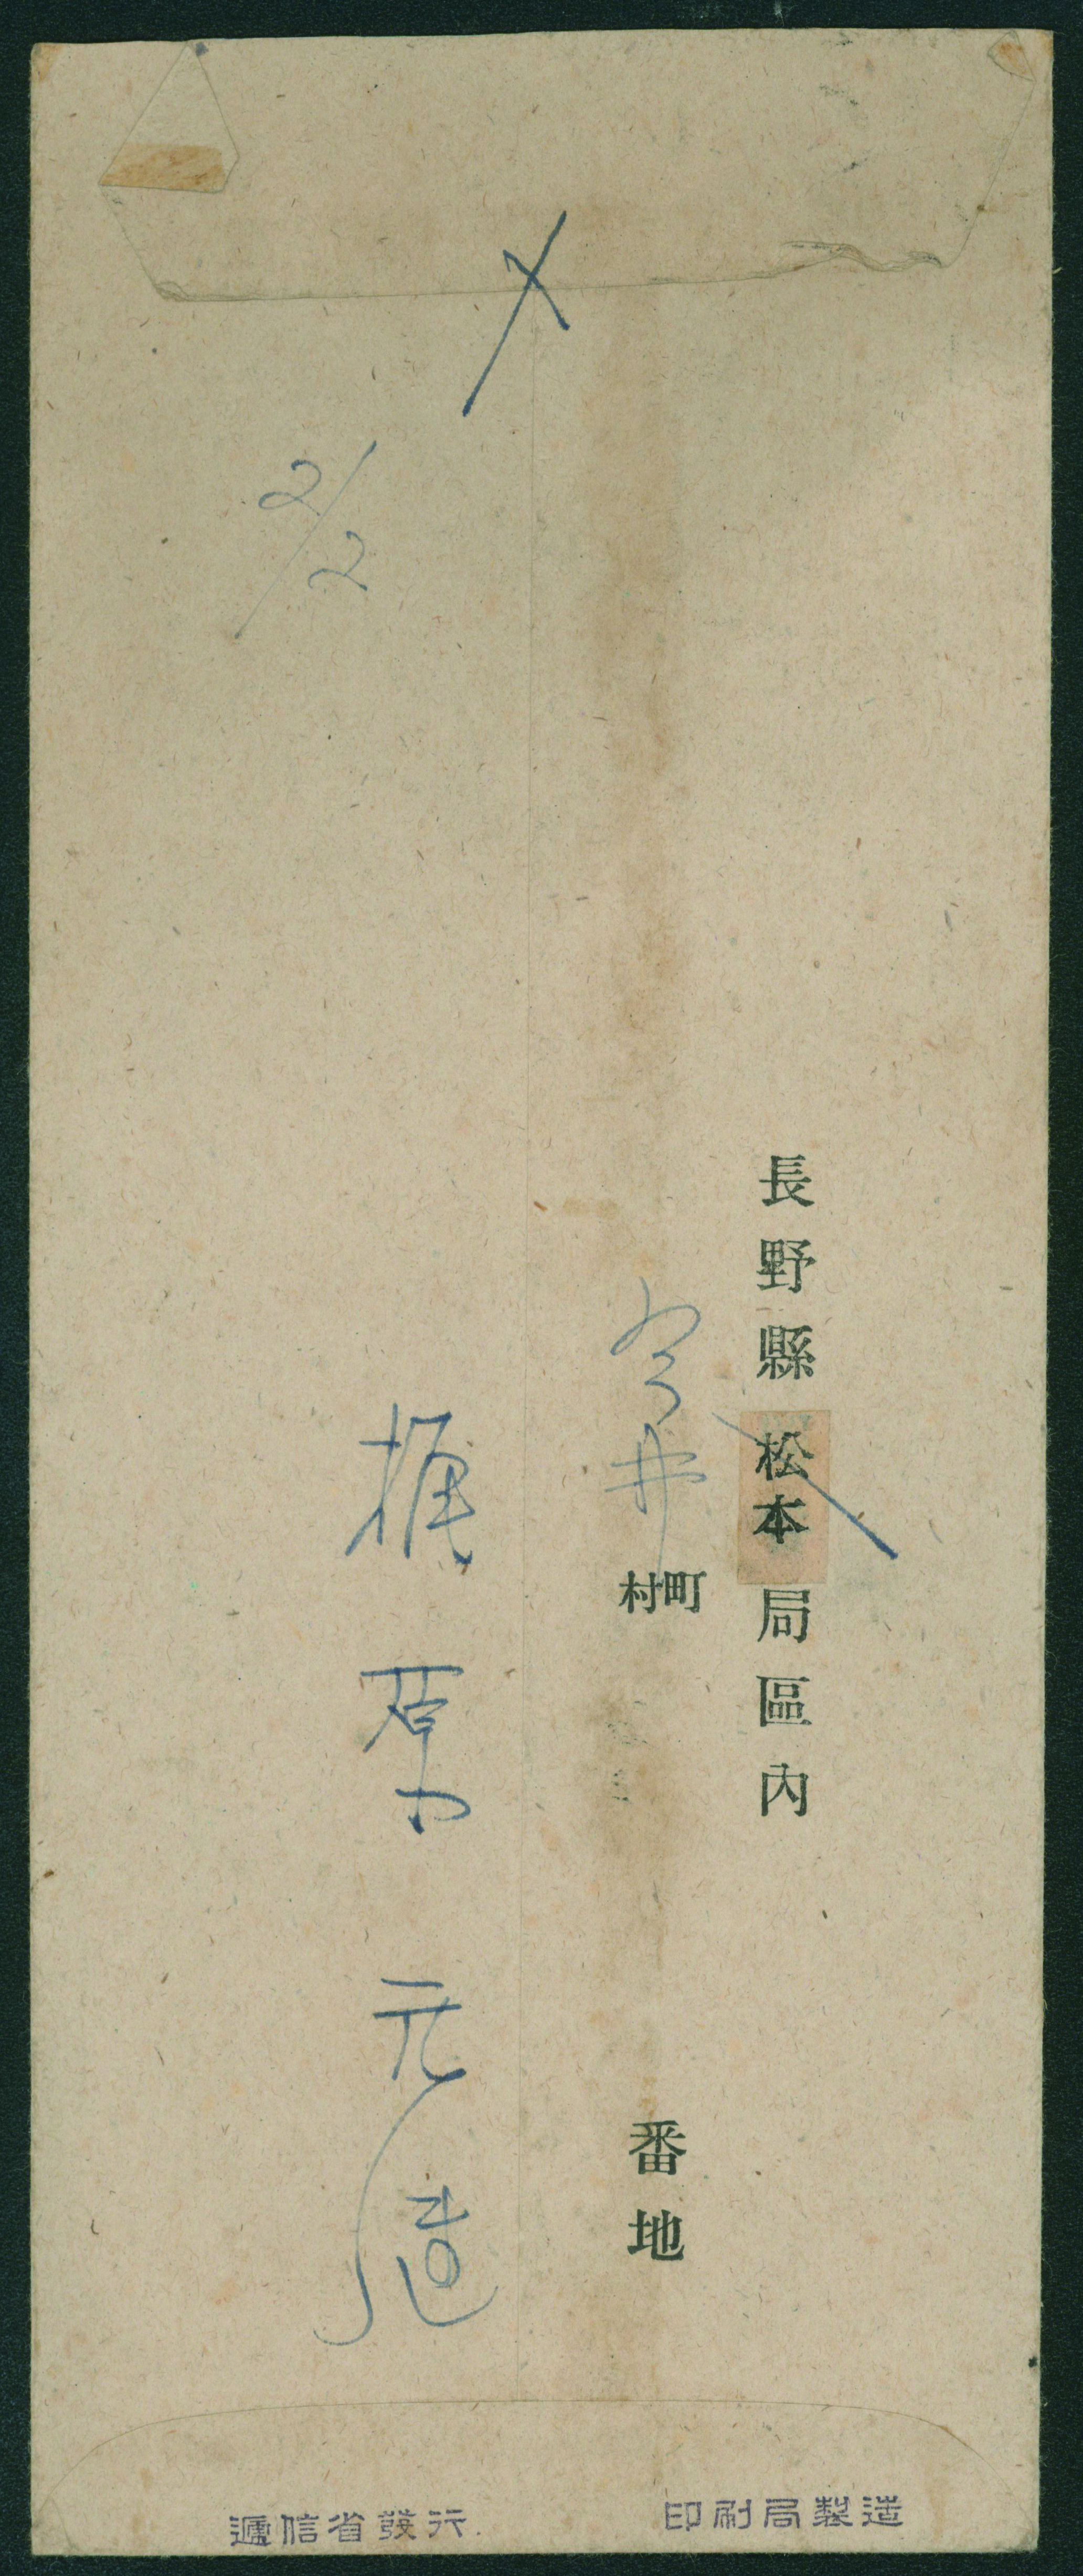 〆
長野縣松本局區内
今井
町村
番地
2/2
梶原元造
印刷局製造
遞信省發行